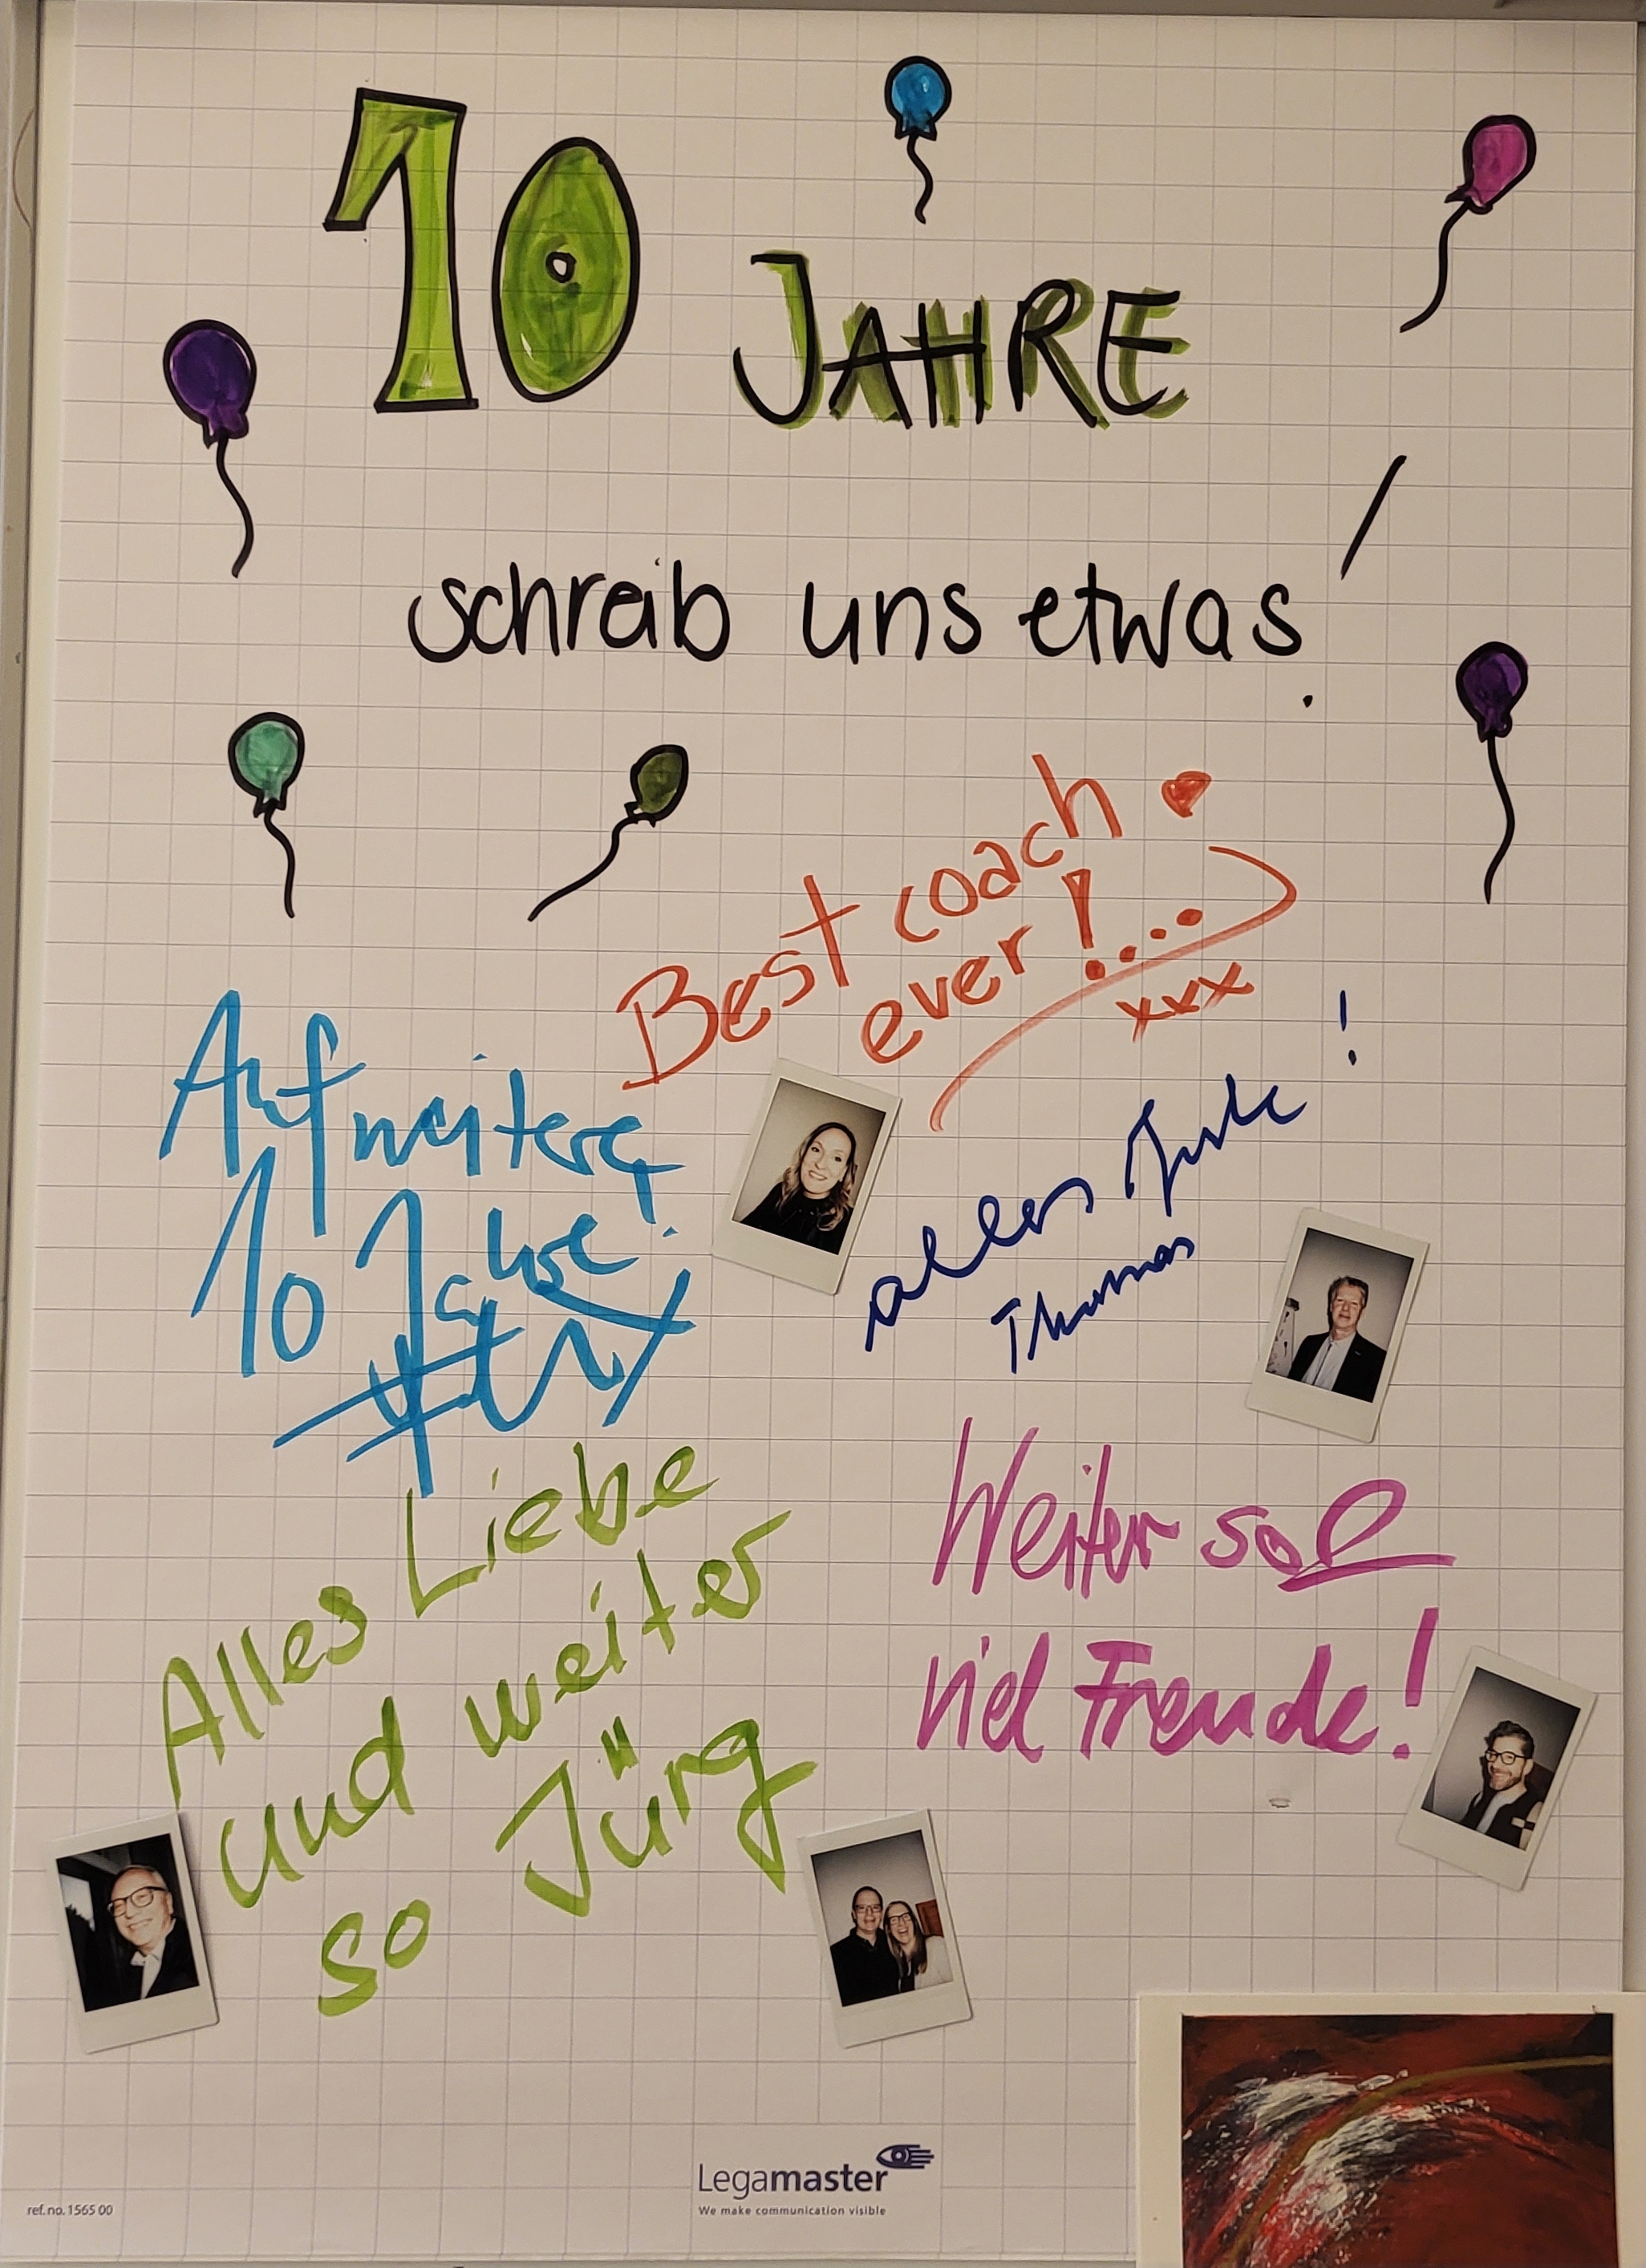 10 JAHRE
schreib uns etwas!
Best coach
ever!...
xxx
Auf weitere
10 Jahre!
alles Gute!
Thomas
Alles Liebe
und weiter
so Jürg
Weiter so
viel Freude!
Legamaster
We make communication visible
ref. no. 1565 00